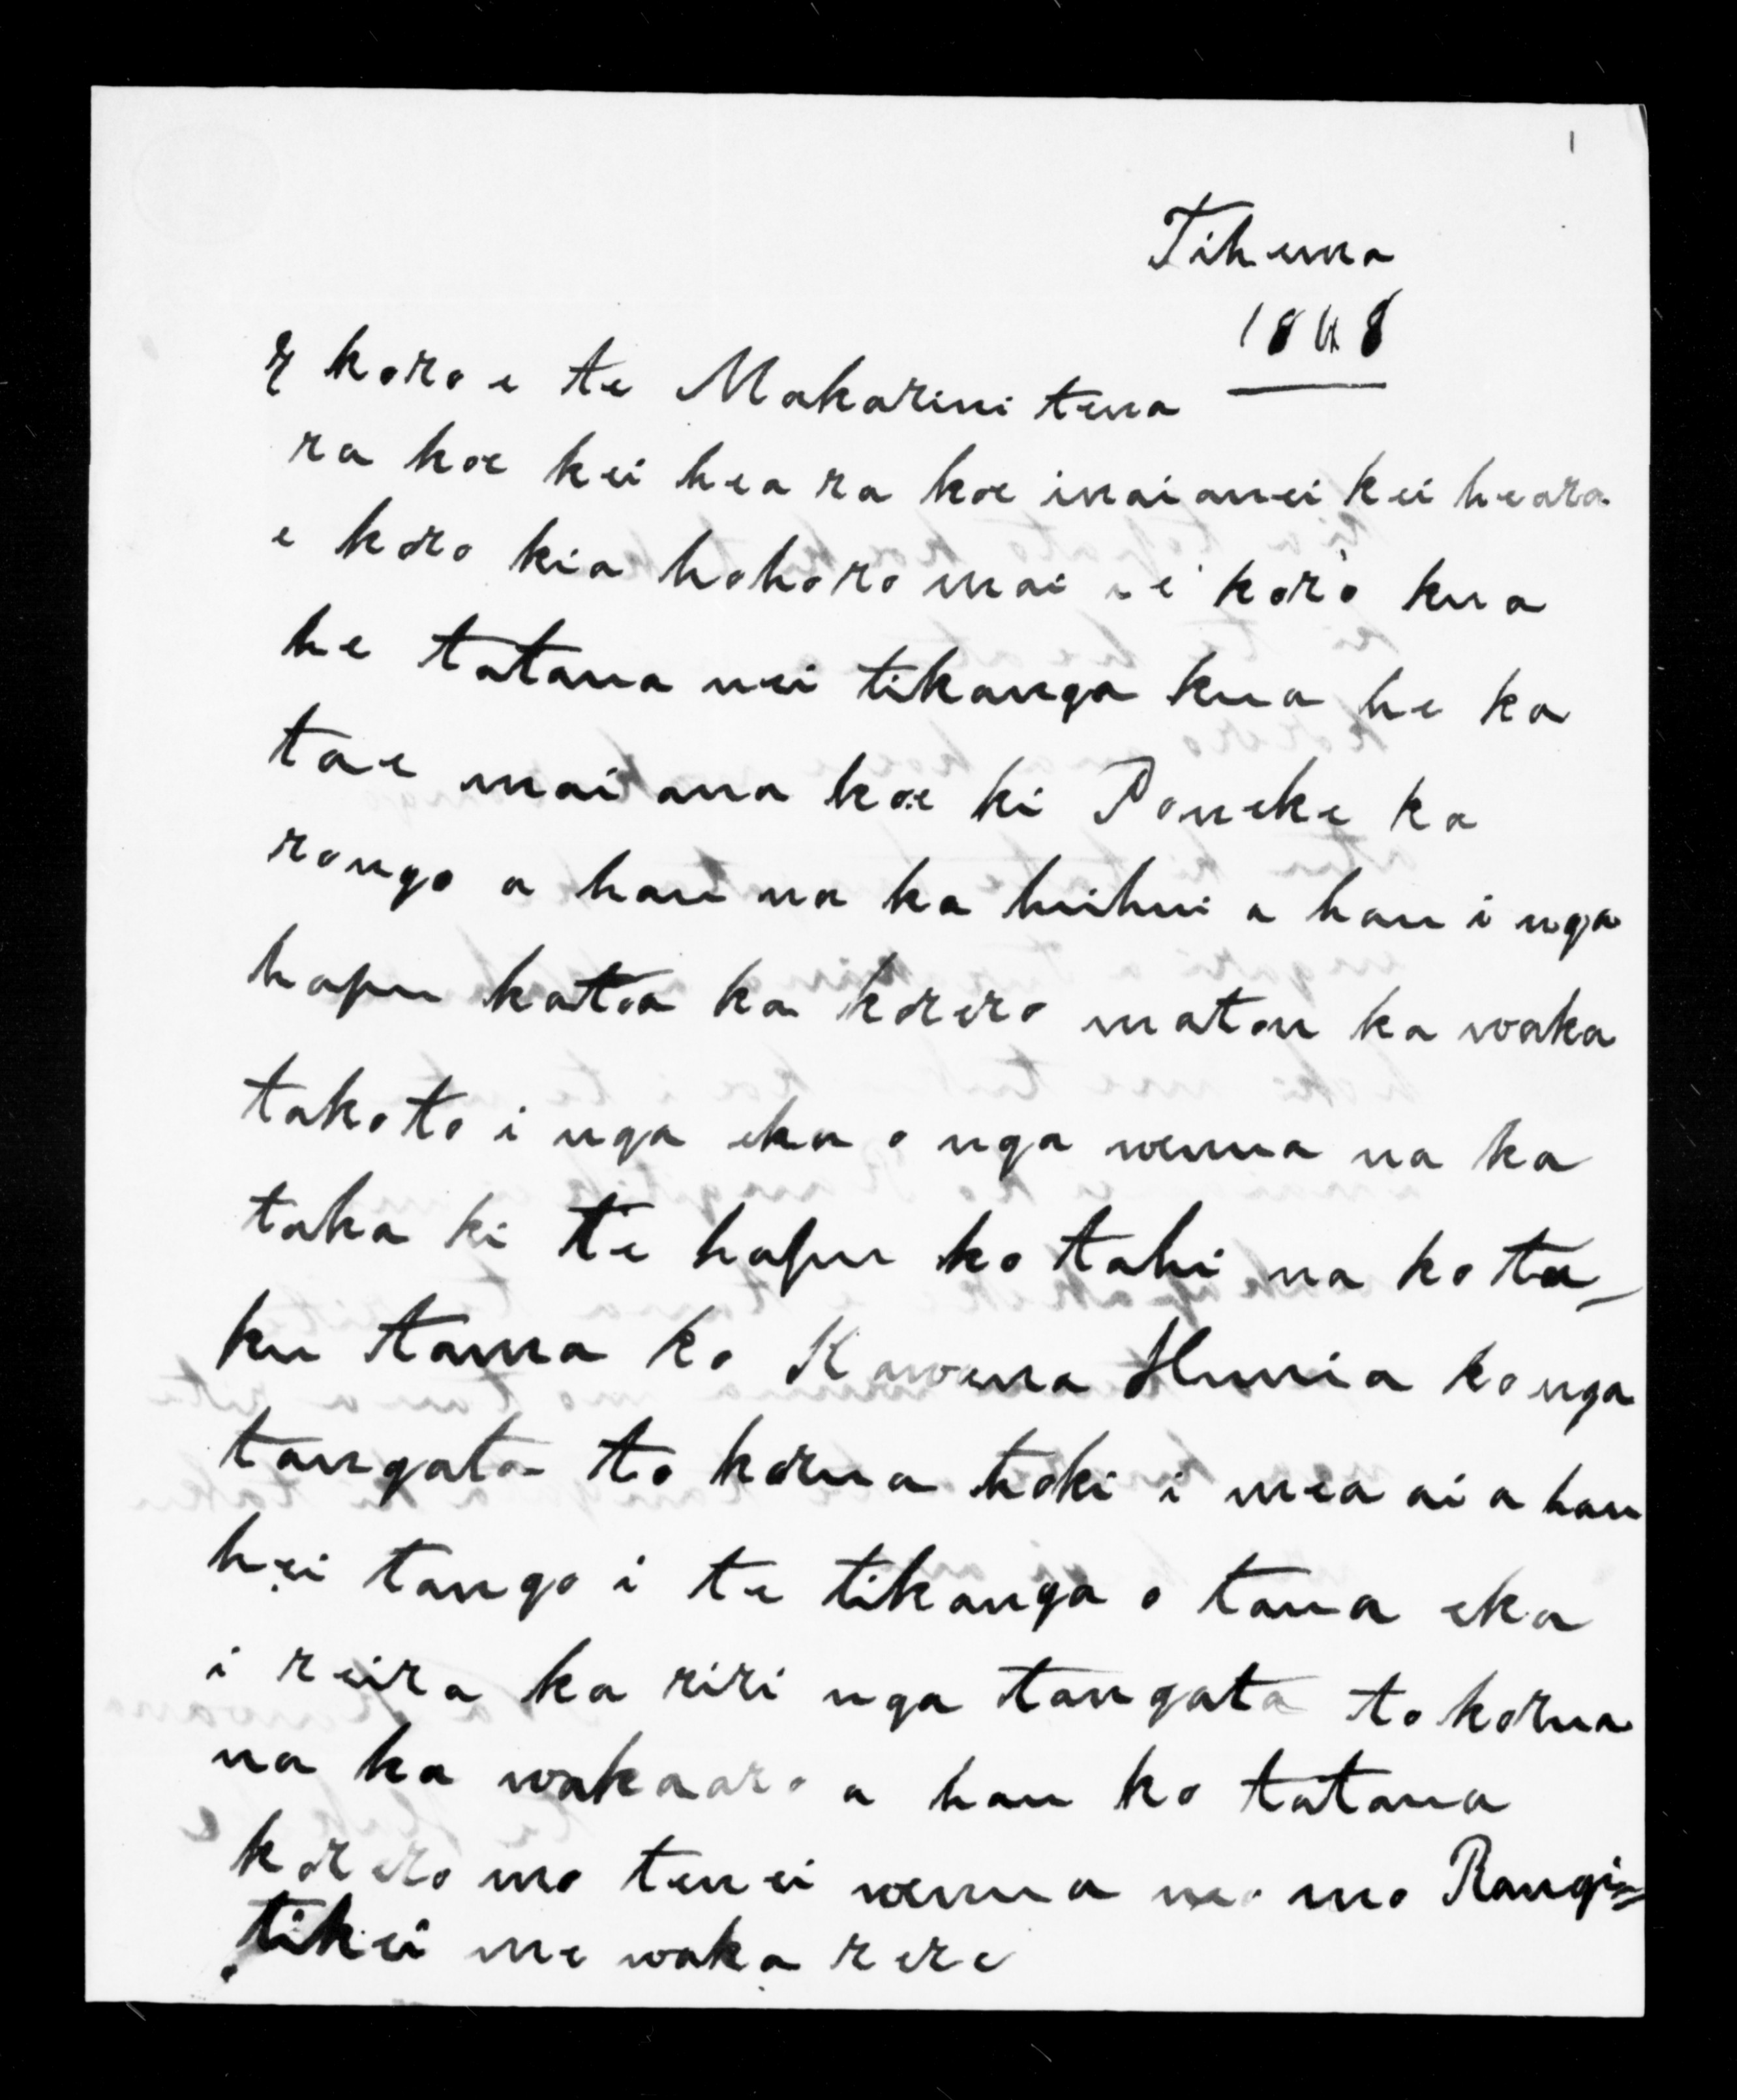 1
Tihema
1848
E koro e te Makarini tena
ra koe kei hea ra koe inaianei kei heara
e koro kia hohoro mai e koro kua
he tatana nei tikanga kua he ka
tae mai ana koe ki Poneke ka
rongo a hau na ka huihui a hau i nga
hapu katoa ka korero matou ka waka
takoto i nga eka o nga wenua na ka
taka ki te hapu ko tahi na ko ta
ku tama ko Kawena Hunia ko nga
tangata to korua hoki i mea ai a hau
hei tango i te tikanga o taua eka
i reira ka riri nga tangata to korua
na ka wakaaro a hau ko tatana
korero mo tenei wenua mo Rangi=
tikei me waka rere